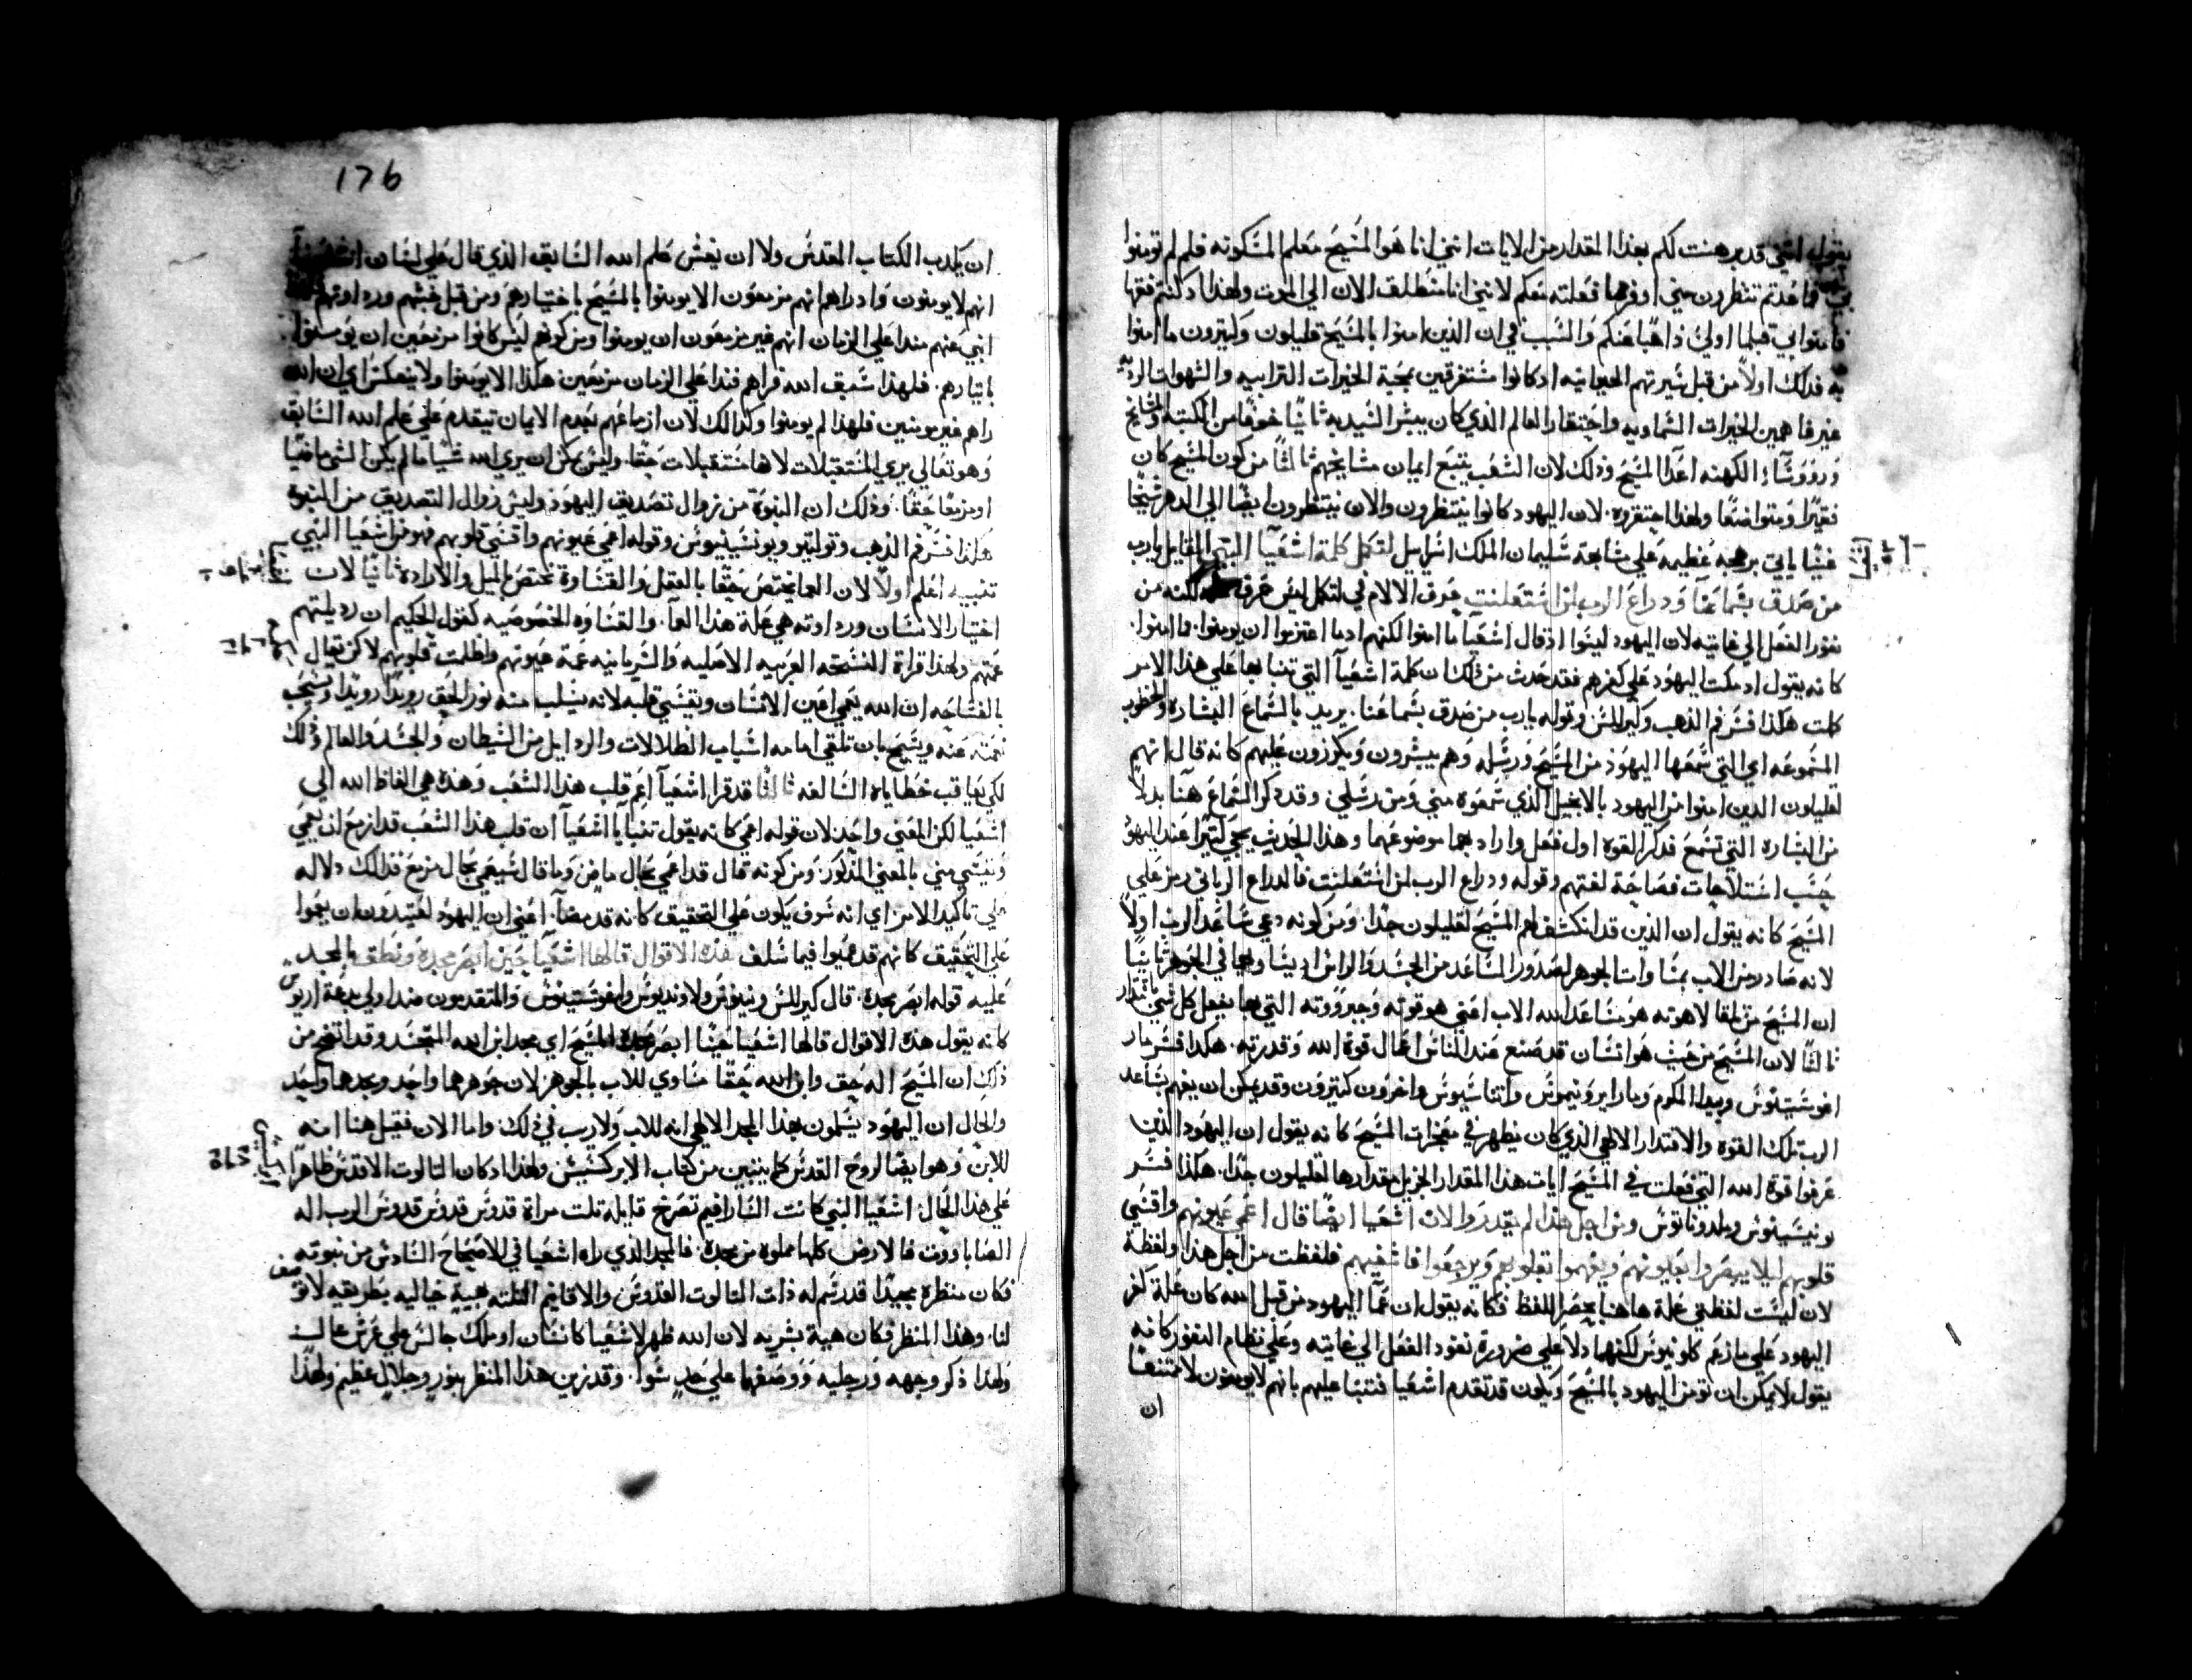 يقول انني قد برهنت لكم بهذا المقدار من الايات انني انا هو المسيح معلم المسكونه فلم لم تومنوا
بي فما عدتم تنتظرون مني اوفر مما فعلته معكم لانني انا منطلق الان الي الموت ولهذا
فامنوا بي قبلما اولي ذاهبا عنكم والسبب في ان الذين امنوا بالمسيح قليلون وكثيرون ما امنوا
به فذلك اولا من قبل سيرتهم الحيوانيه اذ كانوا مستغرقين بمحبة الخيرات الترابيه والشهوات
غير فاهمين الخيرات السماويه واحتقار العالم الذي كان يبشر السيد به ثانيا خوفا من الكتبه والمشايخ
وروؤساء الكهنه اعدا المسيح وذلك لان الشعب يتبع ايمان مشايخهم ثالثا من كون المسيح كان
فقيرا ومتواضعا ولهذا احتقروه. لان اليهود كانوا ينتظرون والان ينتظرون ايضا الي الدهر مسيحا
غنيا ياتي ببهجه عظيمه علي مشابهة سليمان الملك اسراييل لتكمل كلمة اشعيا النبي القايل يارب
من صدق بسماعنا وذراع الرب لمن استعلنت حرف الالام في لتكمل ليس حرف علة لكنه من
نفوذ الفعل الي غايته لان اليهود ليسوا اذ قال اشعيا ما امنوا لكنهم اذ ما اعتزموا ان يومنوا. ما امنوا.
كانه يقول اذ مكث اليهود علي كفرهم فقد حدث من ذلك ان كلمة اشعيا التي تنبا بها علي هذا الامر
كملت هكذا فسر فم الذهب وكيرللس وقوله يارب من صدق بسماعنا. يريد بالسماع البشاره
المسموعه اي التي سمعها اليهود من المسيح ورسله وهم يبشرون ويكرزون عليهم كانه قال انهم
لقليلون الذين امنوا من اليهود بالانجيل الذي سمعوه مني ومن رسلي وقد ذكر السماع هنا بدلا
من البشاره التي تسمع فذكر القوه اول فعل واراد بهما موضوعهما وهذا الحديث يجي كثيرا عند اليهود
حسب اصطلاحات فصاحة لغتهم وقوله وذراع الرب لمن استعلنت فالذراع الرباني رمز علي
المسيح كانه يقول ان الذين قد انكشف لهم المسيح لقليلون جدا. ومن كونه دعي ساعد الرب اولا
لانه صادر من الاب بمساواة الجوهر لصدور الساعد من الجسد والراس اذ يتساويا في الجوهر ثانيا
ان المسيح من تلقا لاهوته هو ساعد الله الاب اعني هو قوته وجبروته التي بها يفعل كل شي
ثالثا لان المسيح من حيث هو انسان قد صنع عند الناس اعمال قوة الله وقدرته. هكذا فسر مار
اغوستينوس وبيدا المكرم ومار ايرونيموس واثناسيوس واخرون كثيرون وقد يمكن ان يفهم بساعد
الرب تلك القوة والاقتدار الالهي الذي كان يظهر في معجزات المسيح كانه يقول ان اليهود الذين
عرفوا قوة الله التي فعلت في المسيح ايات هذا المقدار الجزيل مقدارها لقليلون جدا. هكذا فسر
يونيسينوس وملدوناتوس ومن اجل هذا لم يقدروا لان اشعيا ايضا قال اعمي عيونهم واقسي
قلوبهم ليلا يبصروا بعيونهم ويفهموا بقلوبهم ويرجعوا فاشفيهم فلفظت من اجل هذا ولفظة
لان ليست لفظتي علة هاهنا بحصر اللفظ فكانه يقول ان عما اليهود من قبل الله كان علة كفر
اليهود علي ما زعم كلونيوس لكنهما دلا علي ضرورة نفوذ الفعل الي غايته وعلي نظام النفوذ كانه
يقول لا يمكن ان تومن اليهود بالمسيح ويكون قد تقدم اشعيا فتنبا عليهم بانهم لا يومنون لامتنع
ان
176
ان يكذب الكتاب المقدس ولا ان يغش علم الله السابق الذي قال علي لسان اشعيا
انهم لا يومنون واذ راهم انهم مزمعون الا يومنوا بالمسيح باختيارهم ومن قبل خبثهم ورداوتهم
انبي عنهم منذ اعلي الزمان انهم غير مزمعون ان يومنوا ومن كونهم ليس كانوا مزمعين ان يومنوا
بايثارهم. فلهذا سبق الله فراهم منذ اعلي الزمان مزمعين هكذا الا يومنوا ولا ينعكس اي ان الله
راهم غير مومنين فلهذا لم يومنوا وكذالك لان ازماعهم بعدم الايمان تيقدم علي علم الله السابق
وهو تعالي يري المستقبلات لانها مستقبلات حقا. وليس يمكن ان يري الله شيا ما لم يكن الشي ماضيا
او مزمعا حقا: وذلك ان النبوة من زوال تصديق اليهود وليس زوال التصديق من النبوة
هكذا فسر فم الذهب وتوليتو ويونسينيوس وقوله اعمي عيونهم واقسي قلوبهم فهو من اشعيا النبي
تنبيه اعلم اولا لان العما يختص حقا بالعقل والقساوة تختص بالميل والاراده ثانيا لان
اختيار الانسان ورداوته هي علة هذا العما. والقساوه الخصوصيه كقول الحكيم ان رذيلتهم
عمتهم ولهذا قراة النسخه العربيه الاصليه والسريانيه عمة عيونهم واظلمت قلوبهم لاكن تقال
بالفصاحه ان الله يعمي اعين الانسان ويقسي قلبه لانه يسلب منه نور الحق رويدا رويدا ويسحب
نعمته عنه ويسمح بان تلتقي امامه اسباب الضلالات والرذايل من الشيطان والجسد والعالم ذلك
لكي يعاقب خطاياه السالفه ثالثا قد قرا اشعيا اعم قلب هذا الشعب وهذه هي الفاظ الله الي
اشعيا لكن المعني واحد لان قوله اعمي كانه يقول تنبا يا اشعيا ان قلب هذا الشعب قد ازمع ان يعمي
ويقسي مني بالمعني المذكور: ومن كونه قال قد اعمي بحال ماض وما قال سيعمي بحال مزمع فذلك دلاله
علي تاكيد الامر اي انه سوف يكون علي التحقيق كانه قد مضا. اعني ان اليهود لعتيدون ان يعموا
علي التحقيق كانهم قد عميوا فيما سلف هذه الاقوال قالها اشعيا حين ابصر مجده ونطق بالمجد
عليه قوله ابصر مجده. قال كيرللس ونينوس ولاونديوس واغوستينوس والمتقدمون ضد اولي بدعة اريوس
كانه يقول هذه الاقوال قالها اشعيا حينا ابصر مجد المسيح اي مجد ابن الله المتجسد وقد اتضح من
ذلك ان المسيح اله حق وابن الله حقا مساوي للاب بالجوهر لان جوهرهما واحد ومجدهما واحد
والحال ان اليهود يسلمون بهذا المجد الالهي انه للاب ولا ريب في ذلك. واما الان فقيل هنا انه
للابن وهو ايضا لروح القدس كما يتبين من كتاب الابركسيس ولهذا اذ كان الثالوث الاقدس ظاهرا
علي هذا الحال: اشعيا النبي كانت السارافيم تصرخ قايله ثلث مراة قدوس قدوس قدوس الرب اله
الصاباووت فالارض كلها مملوه من مجده: فالمجد الذي راه اشعيا في الاصحاح السادس من نبوته
فكان منظره مجيدا قد رسم له ذات الثالوث القدوس والاقانيم الثلثه بهيية خياليه بطريقه
لنا. وهذا المنظر فكان هية بشريه لان الله ظهر لاشعيا كانسان او ملك جالس علي عرش عال
ولهذا ذكر وجهه ورجليه ووصفهما علي حد سوا. وقد زين هذا المنظر بنور وجلال عظيم ولهذا